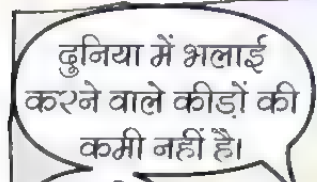 दुनिया में भलाई
करने वाले कीड़ों की
कमी नहीं है।